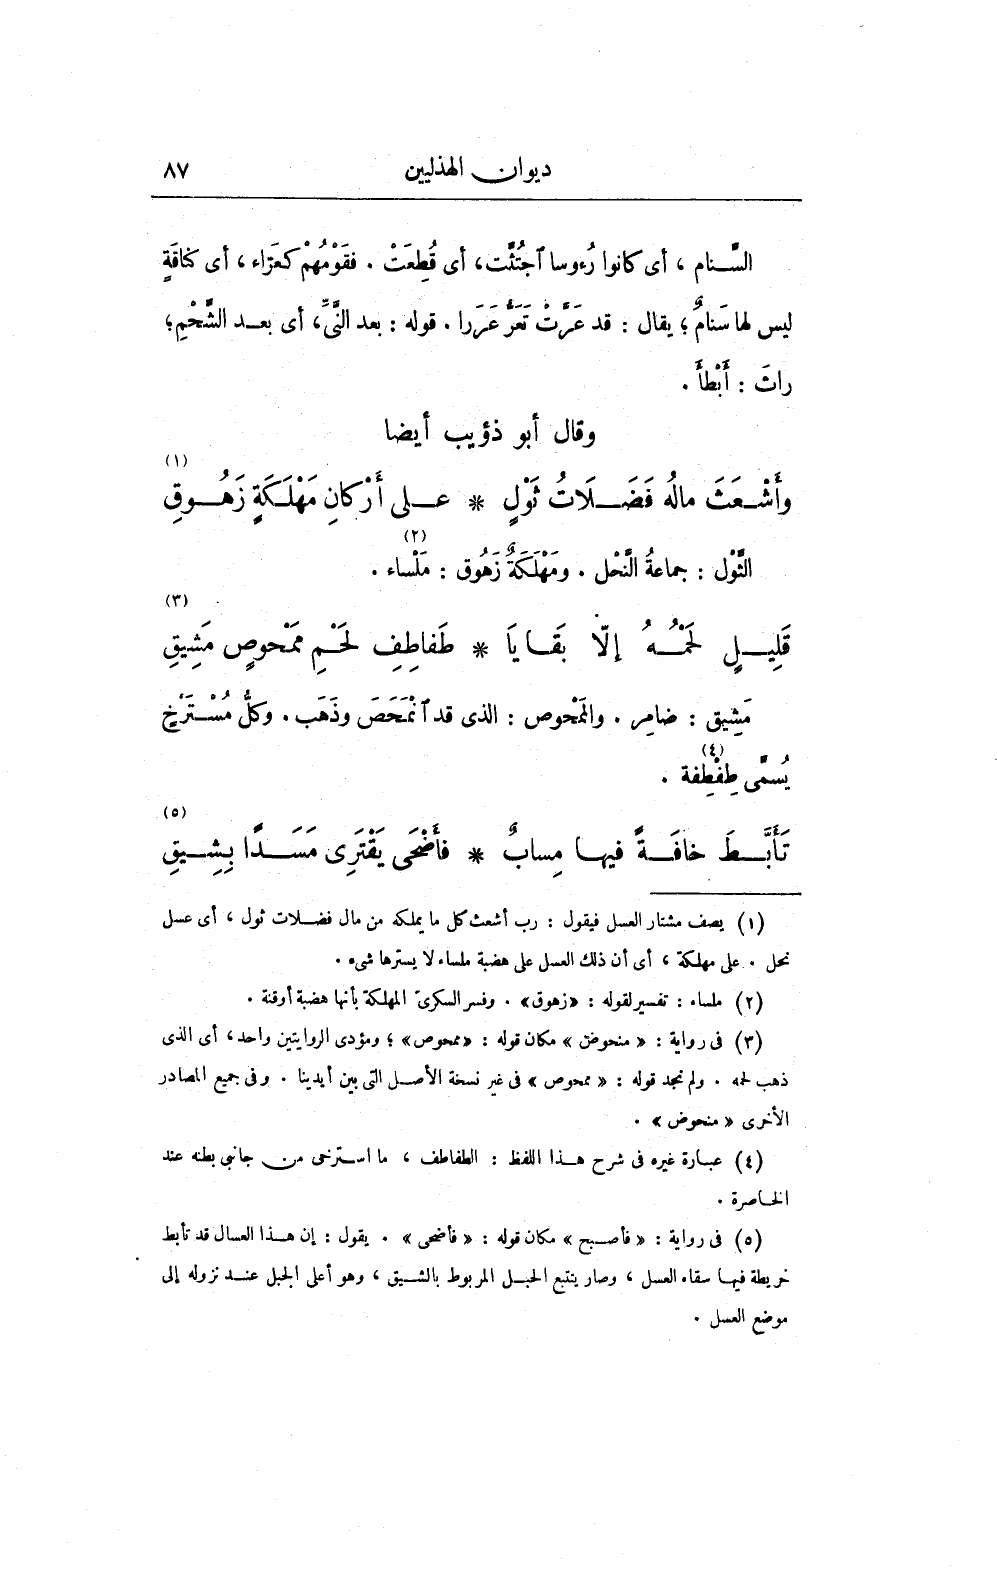 ديوان الهذليين ٨٧
السَّنام ، أى كانوا رُءوسا ٱجْتُثَّت، أى قُطِعَتْ . فقَوْمُهُمْ كعَرّاء ، أى كناقةٍ
ليس لها سَنامٌ ؛ يقال : قد عَرَّتْ تَعَرُّ عَرَرا . قوله : بعد النَّىِّ، أى بعد الشَّحْمِ؛
راثَ : أَبْطأَ .
وقال أبو ذؤيب أيضا
وأَشْعَثَ مالُه فَضَلَاتُ ثَوْلٍ * على أَرْكانِ مَهْلَكَةٍ زَهُوقِ (١)
الثَّوْل : جماعةُ النَّحْل . ومَهْلَكَةٌ زَهُوق : مَلْساء (٢) .
قَلِيلٍ لَحْمُهُ إلّا بَقَايَا * طَفاطِفِ لَحْمِ مَمْحوصٍ مَشِيقِ (٣)
مَشِيق : ضامِر . والمَمْحوص : الذى قد ٱنْمَحَصَ وذَهَب . وكلُّ مُسْتَرْخٍ
يُسمَّى طِفْطِفة (٤) .
تَأَبَّطَ خافَةً فيها مِسابٌ * فأَضْحَى يَقْتَرِى مَسَدًا بِشِيقِ (٥)
(١) يصف مشتار العسل فيقول : رب أشعث كل ما يملكه من مال فضلات ثول ، أى عسل
نحل . على مهلكة ، أى أن ذلك العسل على هضبة ملساء لا يسترها شىء .
(٢) ملساء : تفسير لقوله : «زهوق» . وفسر السكرىّ المهلكة بأنها هضبة أوقنة .
(٣) فى رواية : « منحوض » مكان قوله : «ممحوص» ؛ ومؤدى الروايتين واحد، أى الذى
ذهب لحمه . ولم نجد قوله : « ممحوص » فى غير نسخة الأصل التى بين أيدينا . وفى جميع المصادر
الأخرى « منحوض » .
(٤) عبارة غيره فى شرح هذا اللفظ : الطفاطف ، ما استرخى من جانبى بطنه عند
الخاصرة .
(٥) فى رواية : « فأصبح » مكان قوله : « فأضحى » . يقول : إن هذا العسال قد تأبط
خريطة فيها سقاء العسل ، وصار يتتبع الحبل المربوط بالشيق ، وهو أعلى الجبل عند نزوله إلى
موضع العسل .